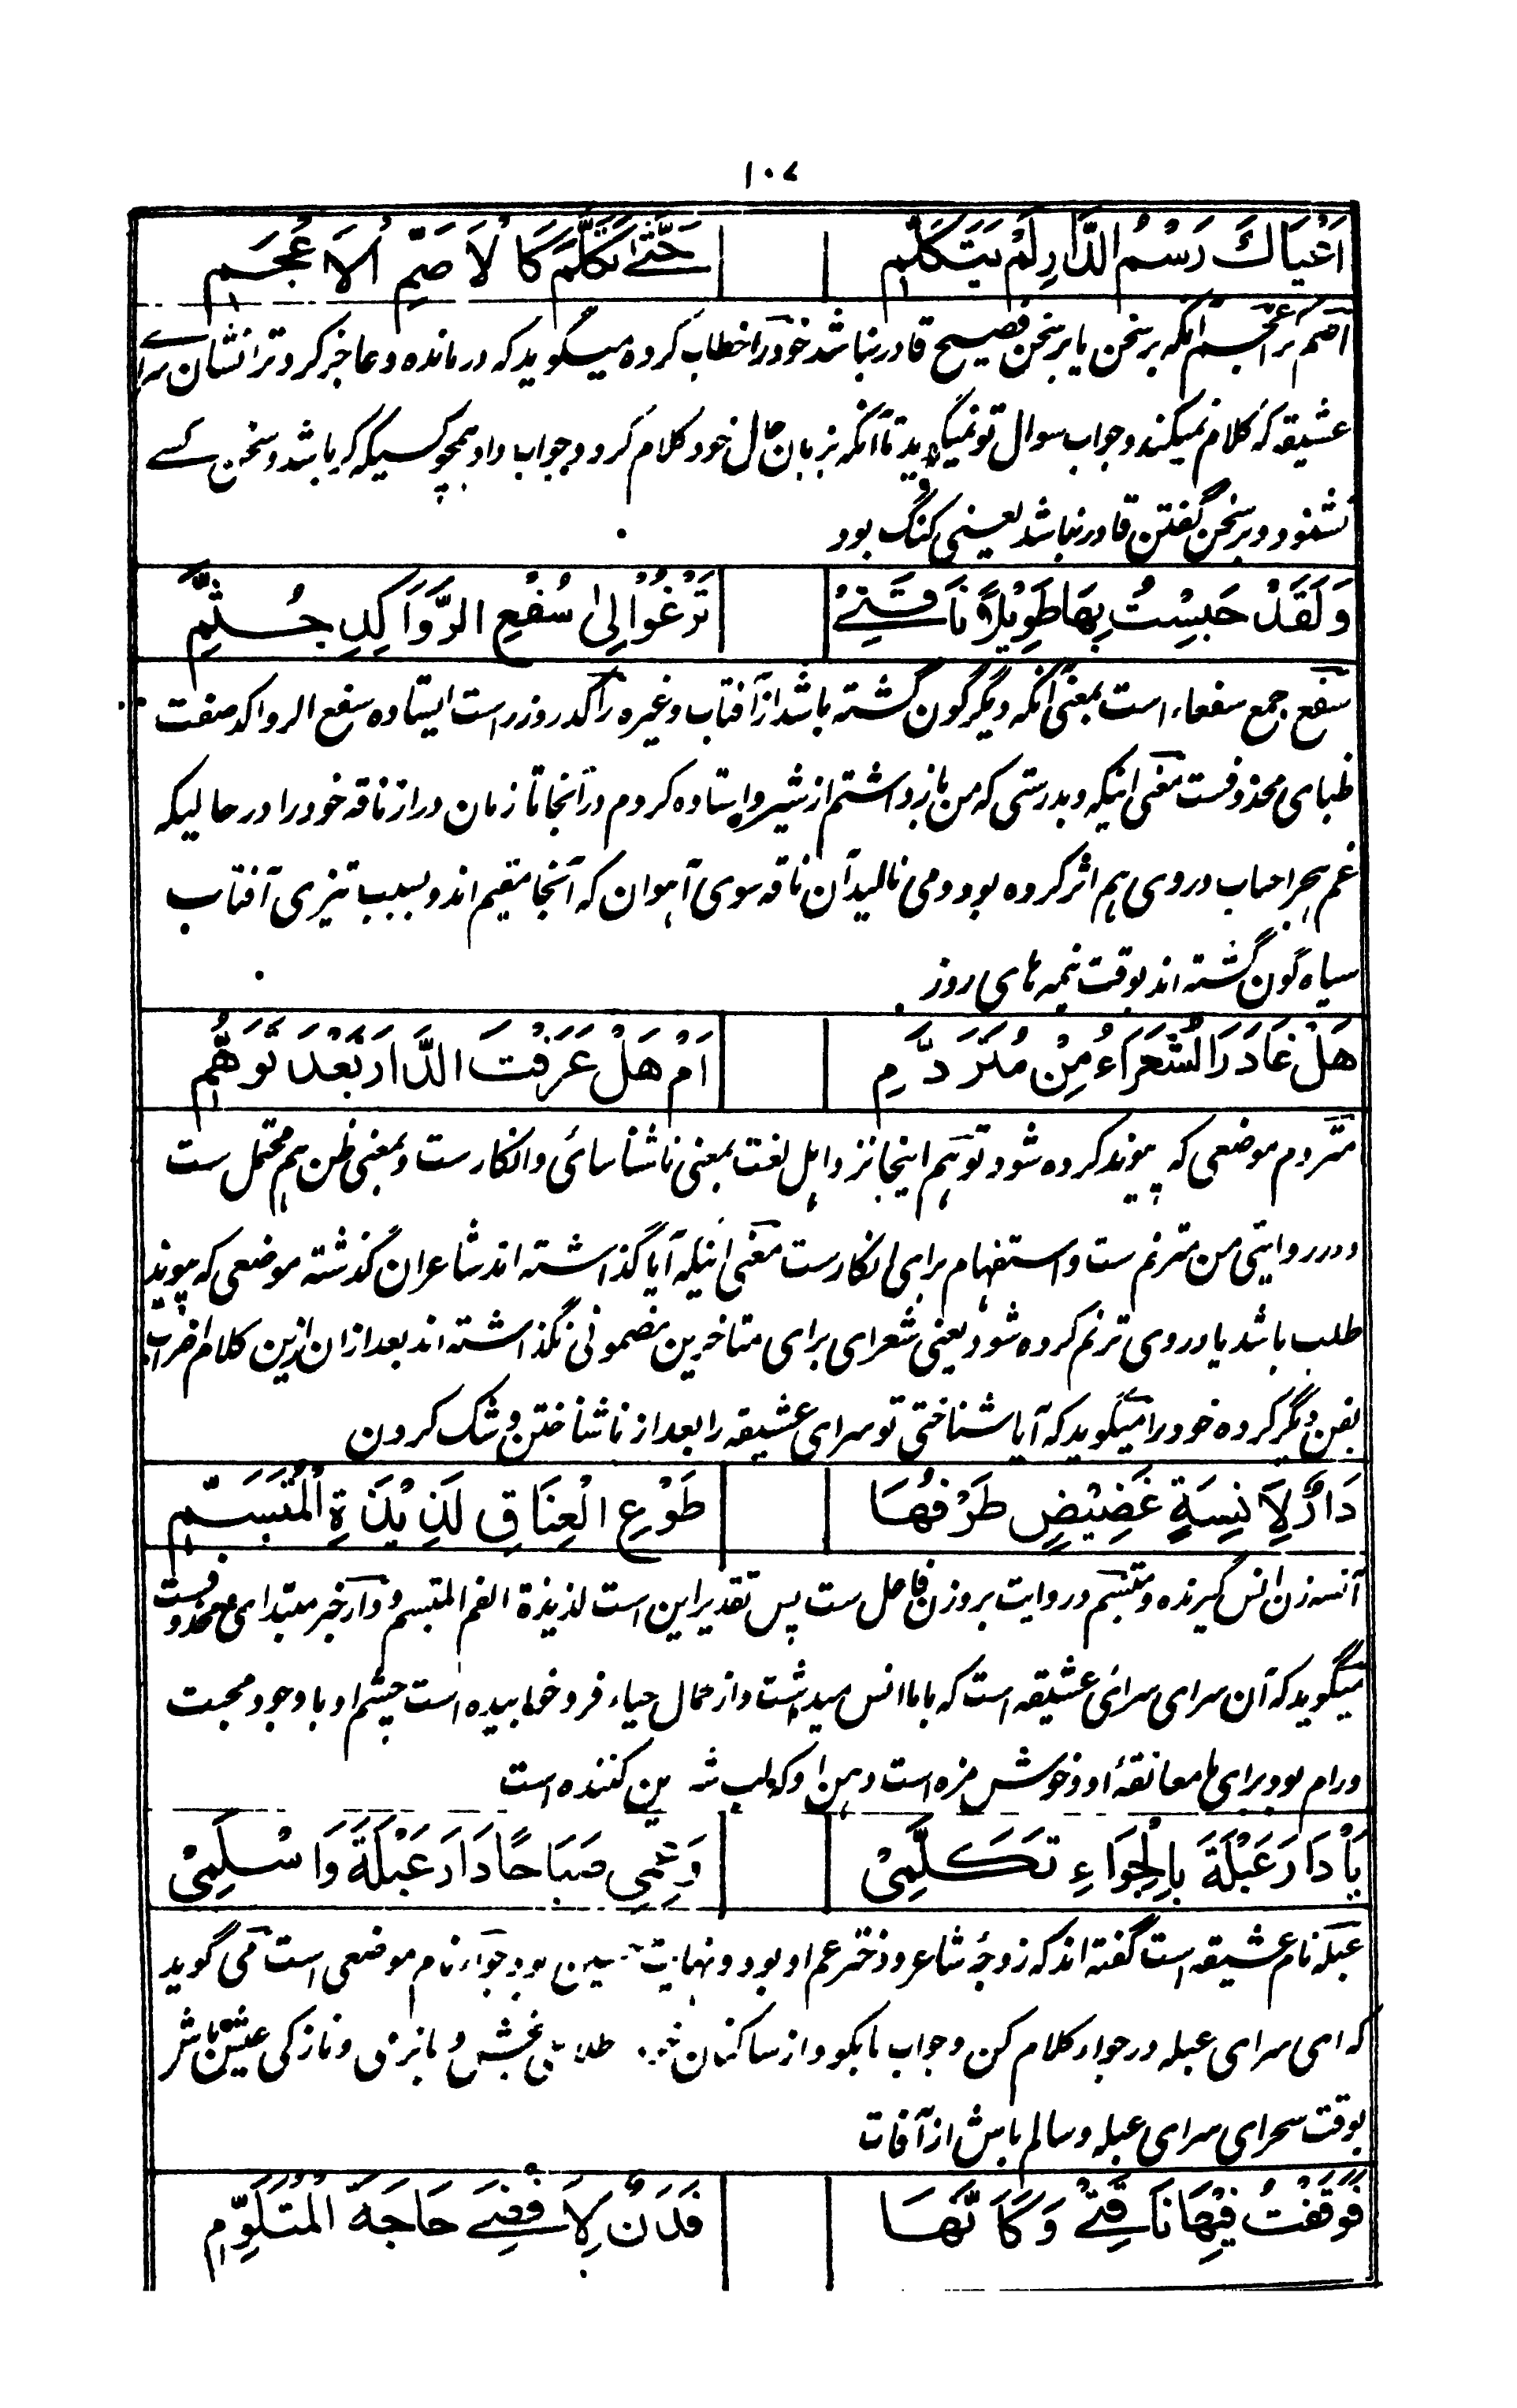 ١٠٧
اَعْيَاكَ رَسْمُ الدَّارِ لَمْ يَتَكَلَّمِ حَتّٰى تَكَلَّمَ كَالْاَصَمِّ الْاَعْجَمِ
اصم کر اعجم آنکه بر سخن یا بر سخن فصیح قادر نباشد خود را خطاب کرده میگوید که درمانده و عاجز کرد ترا نشان سرای
عشیقه که کلام نمیکند و جواب سوال تو نمیگوید تا آنکه بزبان حال خود کلام کرد و جواب داد همچو کسیکه کر باشد و سخن کسے
نشنود و بر سخن گفتن قادر نباشد یعنی گنگ بود
وَلَقَدْ حَبَسْتُ بِهَا طَوِيْلًا نَاقَتِيْ تَرْغُوْ اِلٰى سُفْعِ الرَّوَاكِدِ جُثَّمِ
سفع جمع سفعاء است بمعنی آنکه دیگرگون گشته باشد از آفتاب و غیره راکد روز راست ایستاده سفع الرواکد صفت
ظبای محذوفست معنی اینکه و بدرستی که من بازداشتم از سیر و ایستاده کردم در آنجا تا زمان دراز ناقه خود را در حالیکه
غم هجر احباب در وی هم اثر کرده بود و می نالید آن ناقه سوی آهوان که آنجا مقیم اند و بسبب تیزی آفتاب
سیاه گون گشته اند بوقت نیمه های روز
هَلْ غَادَرَ الشُّعَرَاءُ مِنْ مُتَرَدَّمِ اَمْ هَلْ عَرَفْتَ الدَّارَ بَعْدَ تَوَهُّمِ
متردم موضعی که پیوند کرده شود توهم اینجا نزد اهل لغت بمعنی ناشناسائی و انکارست و بمعنی ظن هم محتمل ست
و در روایتی من مترنم ست و استفهام برای انکارست معنی اینکه آیا گذاشته اند شاعران گذشته موضعی که پیوند
طلب باشد یا در وی ترنم کرده شود یعنی شعرای برای متاخرین مضمونی نگذاشته اند بعد ازان ازین کلام اضراب
بفن دیگر کرده خود را میگوید که آیا شناختی تو سرای عشیقه را بعد از ناشناختن و شک کردن
دَارٌ لِاٰنِسَةٍ غَضِيْضٍ طَرْفُهَا طَوْعِ الْعِنَاقِ لَذِيْذَةِ الْمُتَبَسَّمِ
آنسه زن انس گیرنده و متبسم در روایت بر وزن فاعل ست پس تقدیر این است لذیذة الفم المتبسم و دار خبر مبتدای محذوفست
میگوید که آن سرای سرای عشیقه است که با ما انس میداشت و از کمال حیاء فرو خوابیده است چشم او با وجود محبت
و رام بود برای ما معانقهٔ او و خوش مزه است دهن او که لب کننده است
يَا دَارَ عَبْلَةَ بِالْجِوَاءِ تَكَلَّمِيْ وَعِمِيْ صَبَاحًا دَارَ عَبْلَةَ وَاسْلَمِيْ
عبله نام عشیقه است گفته اند که زوجهٔ شاعر و دختر عم او بود و نهایت بود جواء نام موضعی است می گوید
که ای سرای عبله در جواء کلام کن و جواب ما بگو و از ساکنان و نازکی عیش باش
بوقت سحر ای سرای عبله و سالم باش از آفات
فَوَقَفْتُ فِيْهَا نَاقَتِيْ وَكَاَنَّهَا فَدَنٌ لِاَقْضِيَ حَاجَةَ الْمُتَلَوِّمِ